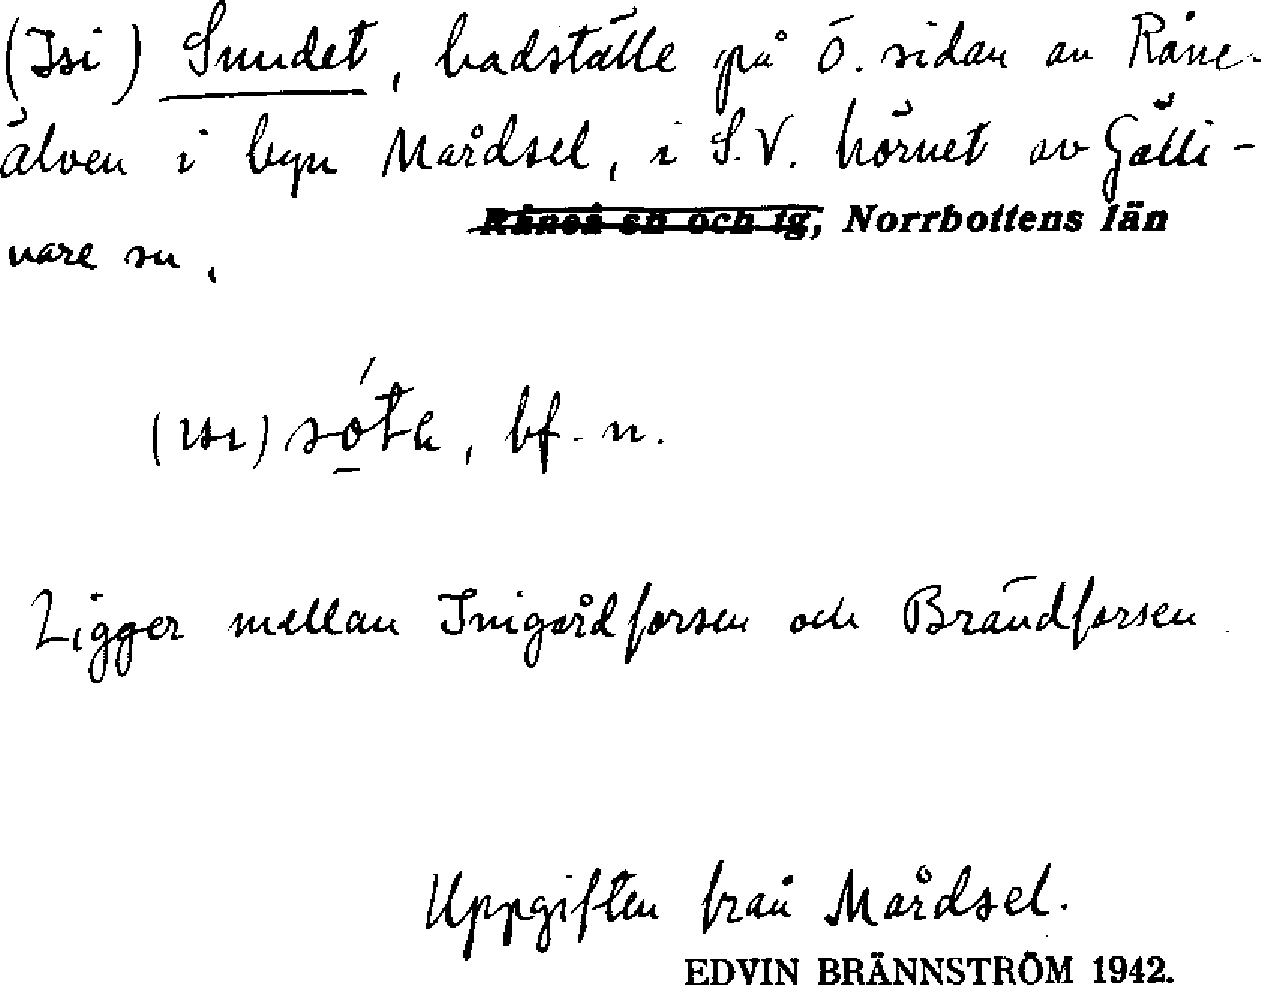 (Isi) Sundet, badställe på ö. sidan av Råne-
älven i byn Mårdsel, i S.V. hörnet av Gälli-
Råneå sn och tg, Norrbottens län
vare sn.
(ɩsɩ) sóta, bf. n.
Ligger mellan Inigårdforsen och Brändforsen
Uppgiften från Mårdsel.
EDVIN BRÄNNSTRÖM 1942.